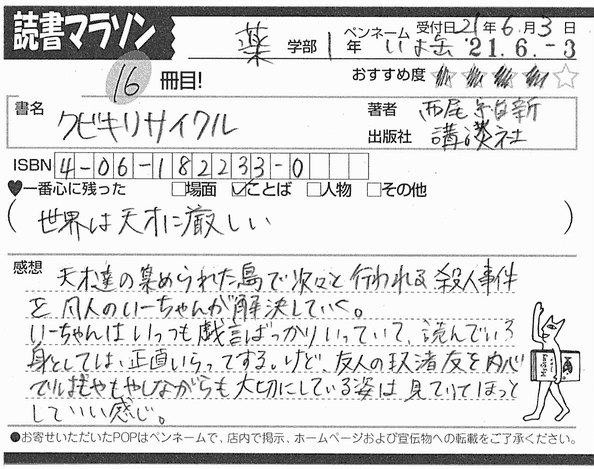 読書マラソン
受付日 21年 6月 3日
薬 学部 1 年 ペンネーム いま
'21.6.-3
16 冊目!
おすすめ度 ★★★★☆
書名 クビキリサイクル
著者 西尾維新
出版社 講談社
ISBN 4-06-182233-0
♥一番心に残った □場面 ☑ことば □人物 □その他
(世界は天才に厳しい)
感想
天才達の集められた島で次々と行われる殺人事件
を凡人のいーちゃんが解決していく。
いーちゃんはいっつも戯言ばっかりいっていて、読んでいる
身としては、正直いらってする。けど、友人の玖渚友を内心
ではもやもやしながらも大切にしている姿は見ててほっと
していい感じ。
●お寄せいただいたPOPはペンネームで、店内で掲示、ホームページおよび宣伝物への転載をご了承ください。